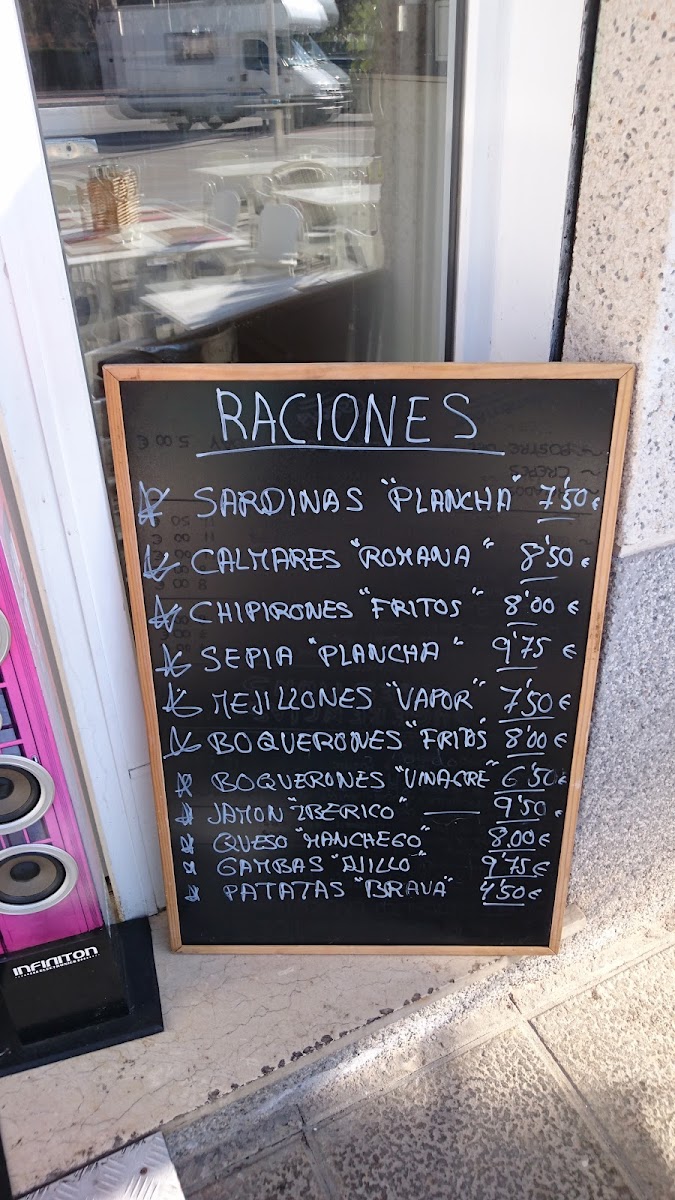 RACIONES
SARDINAS "PLANCHA" 7'50 €
CALMARES "ROMANA" 8'50 €
CHIPIRONES "FRITOS" 8'00 €
SEPIA "PLANCHA" 9'75 €
MEJILLONES "VAPOR" 7'50 €
BOQUERONES "FRITOS" 8'00 €
BOQUERONES "VINAGRE" 6'50 €
JAMON "IBERICO" — 9'50
QUESO "MANCHEGO" 8,00 €
GAMBAS "AJILLO" 9'75 €
PATATAS "BRAVA" 4'50 €
INFINITON